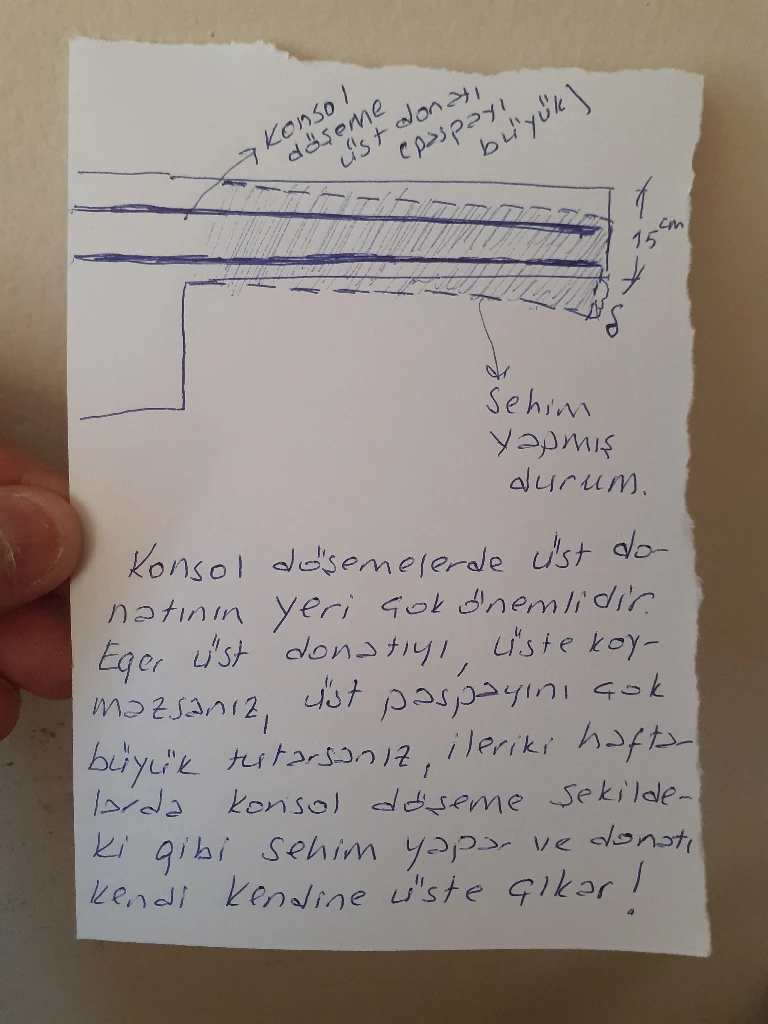 Konsol
döşeme
üst donatı
(paspayı
büyük)
15 cm
δ
Sehim
yapmış
durum.
Konsol döşemelerde üst do-
natının yeri çok önemlidir.
Eğer üst donatıyı, üste koy-
mazsanız, üst paspayını çok
büyük tutarsanız, ileriki hafta-
larda konsol döşeme şekilde-
ki gibi sehim yapar ve donatı
kendi kendine üste çıkar!